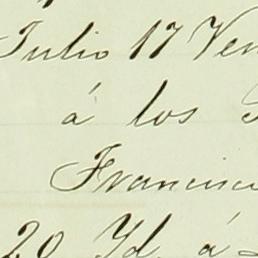 Julio 17 Ven
á los
Francisc
20 Yd. á